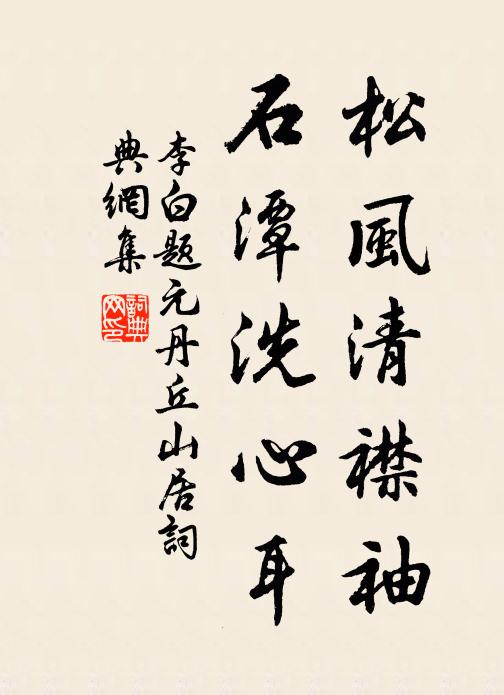 松風清襟袖
石潭洗心耳
李白题元丹丘山居詞
典網集
詞典
网印